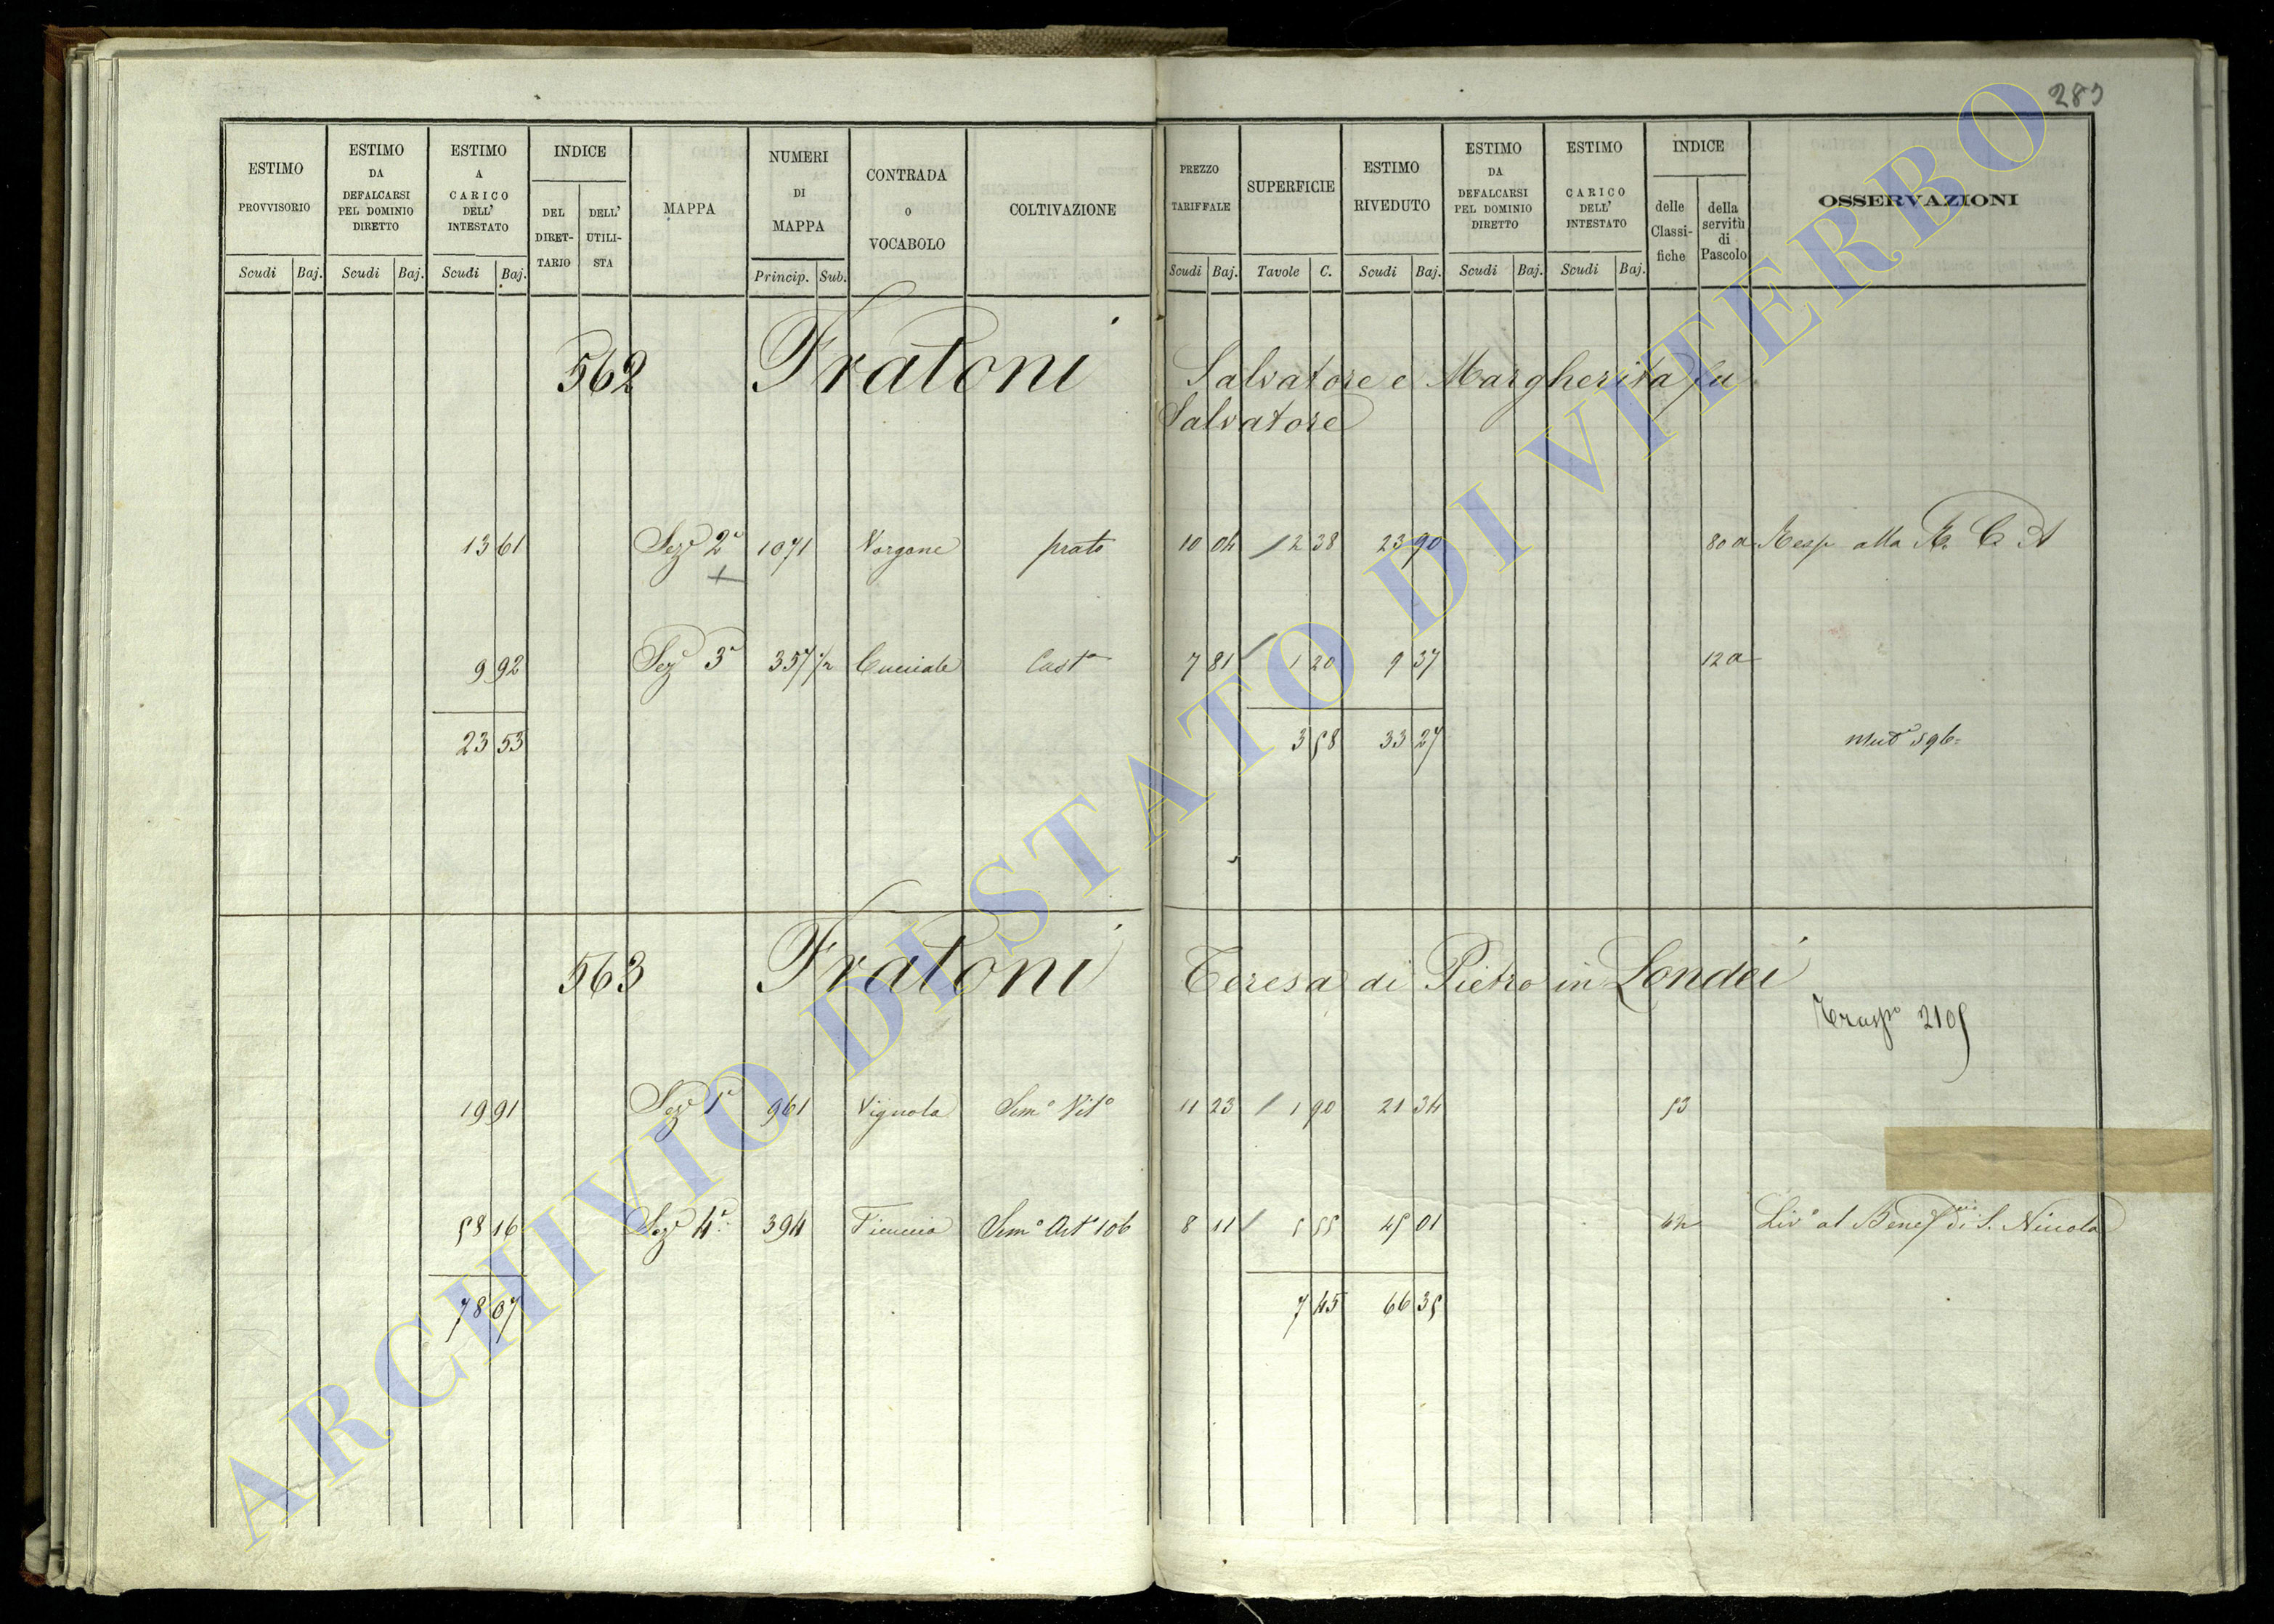 283
ESTIMO PROVVISORIO
ESTIMO DA DEFALCARSI PEL DOMINIO DIRETTO
ESTIMO A CARICO DELL' INTESTATO
INDICE
DEL DIRET-TARIO
DELL' UTILI-STA
MAPPA
NUMERI DI MAPPA
CONTRADA O VOCABOLO
COLTIVAZIONE
PREZZO TARIFFALE
SUPERFICIE
ESTIMO RIVEDUTO
ESTIMO DA DEFALCARSI PEL DOMINIO DIRETTO
ESTIMO CARICO DELL' INTESTATO
INDICE
delle Classi-fiche
della servitù di Pascolo
OSSERVAZIONI
Scudi Baj. Scudi Baj. Scudi Baj. Princip. Sub. Scudi Baj. Tavole C. Scudi Baj. Scudi Baj. Scudi Baj.
562 Fratoni Salvatore e Margherita fu
Salvatore
13 61 Seze 2a 1071 Vorgone prato 10 04 2 38 23 90 80 a Resp alla R. C. A
9 92 Seze 3a 357 1/2 Cucciale Casta 7 81 1 20 9 37 12 a
23 53 3 58 33 27 Muta 596
563 Fratoni Teresa di Pietro in Londei
Traspo 2105
19 91 Seze 1a 961 Vignola Semo Vito 11 23 1 90 21 34 53
58 16 Seze 4a 394 Ficuccia Semo Arto 106 8 11 5 55 45 01 Livo al Benefcio di S. Niccola
78 07 7 45 66 35
ARCHIVIO DI STATO DI VITERBO